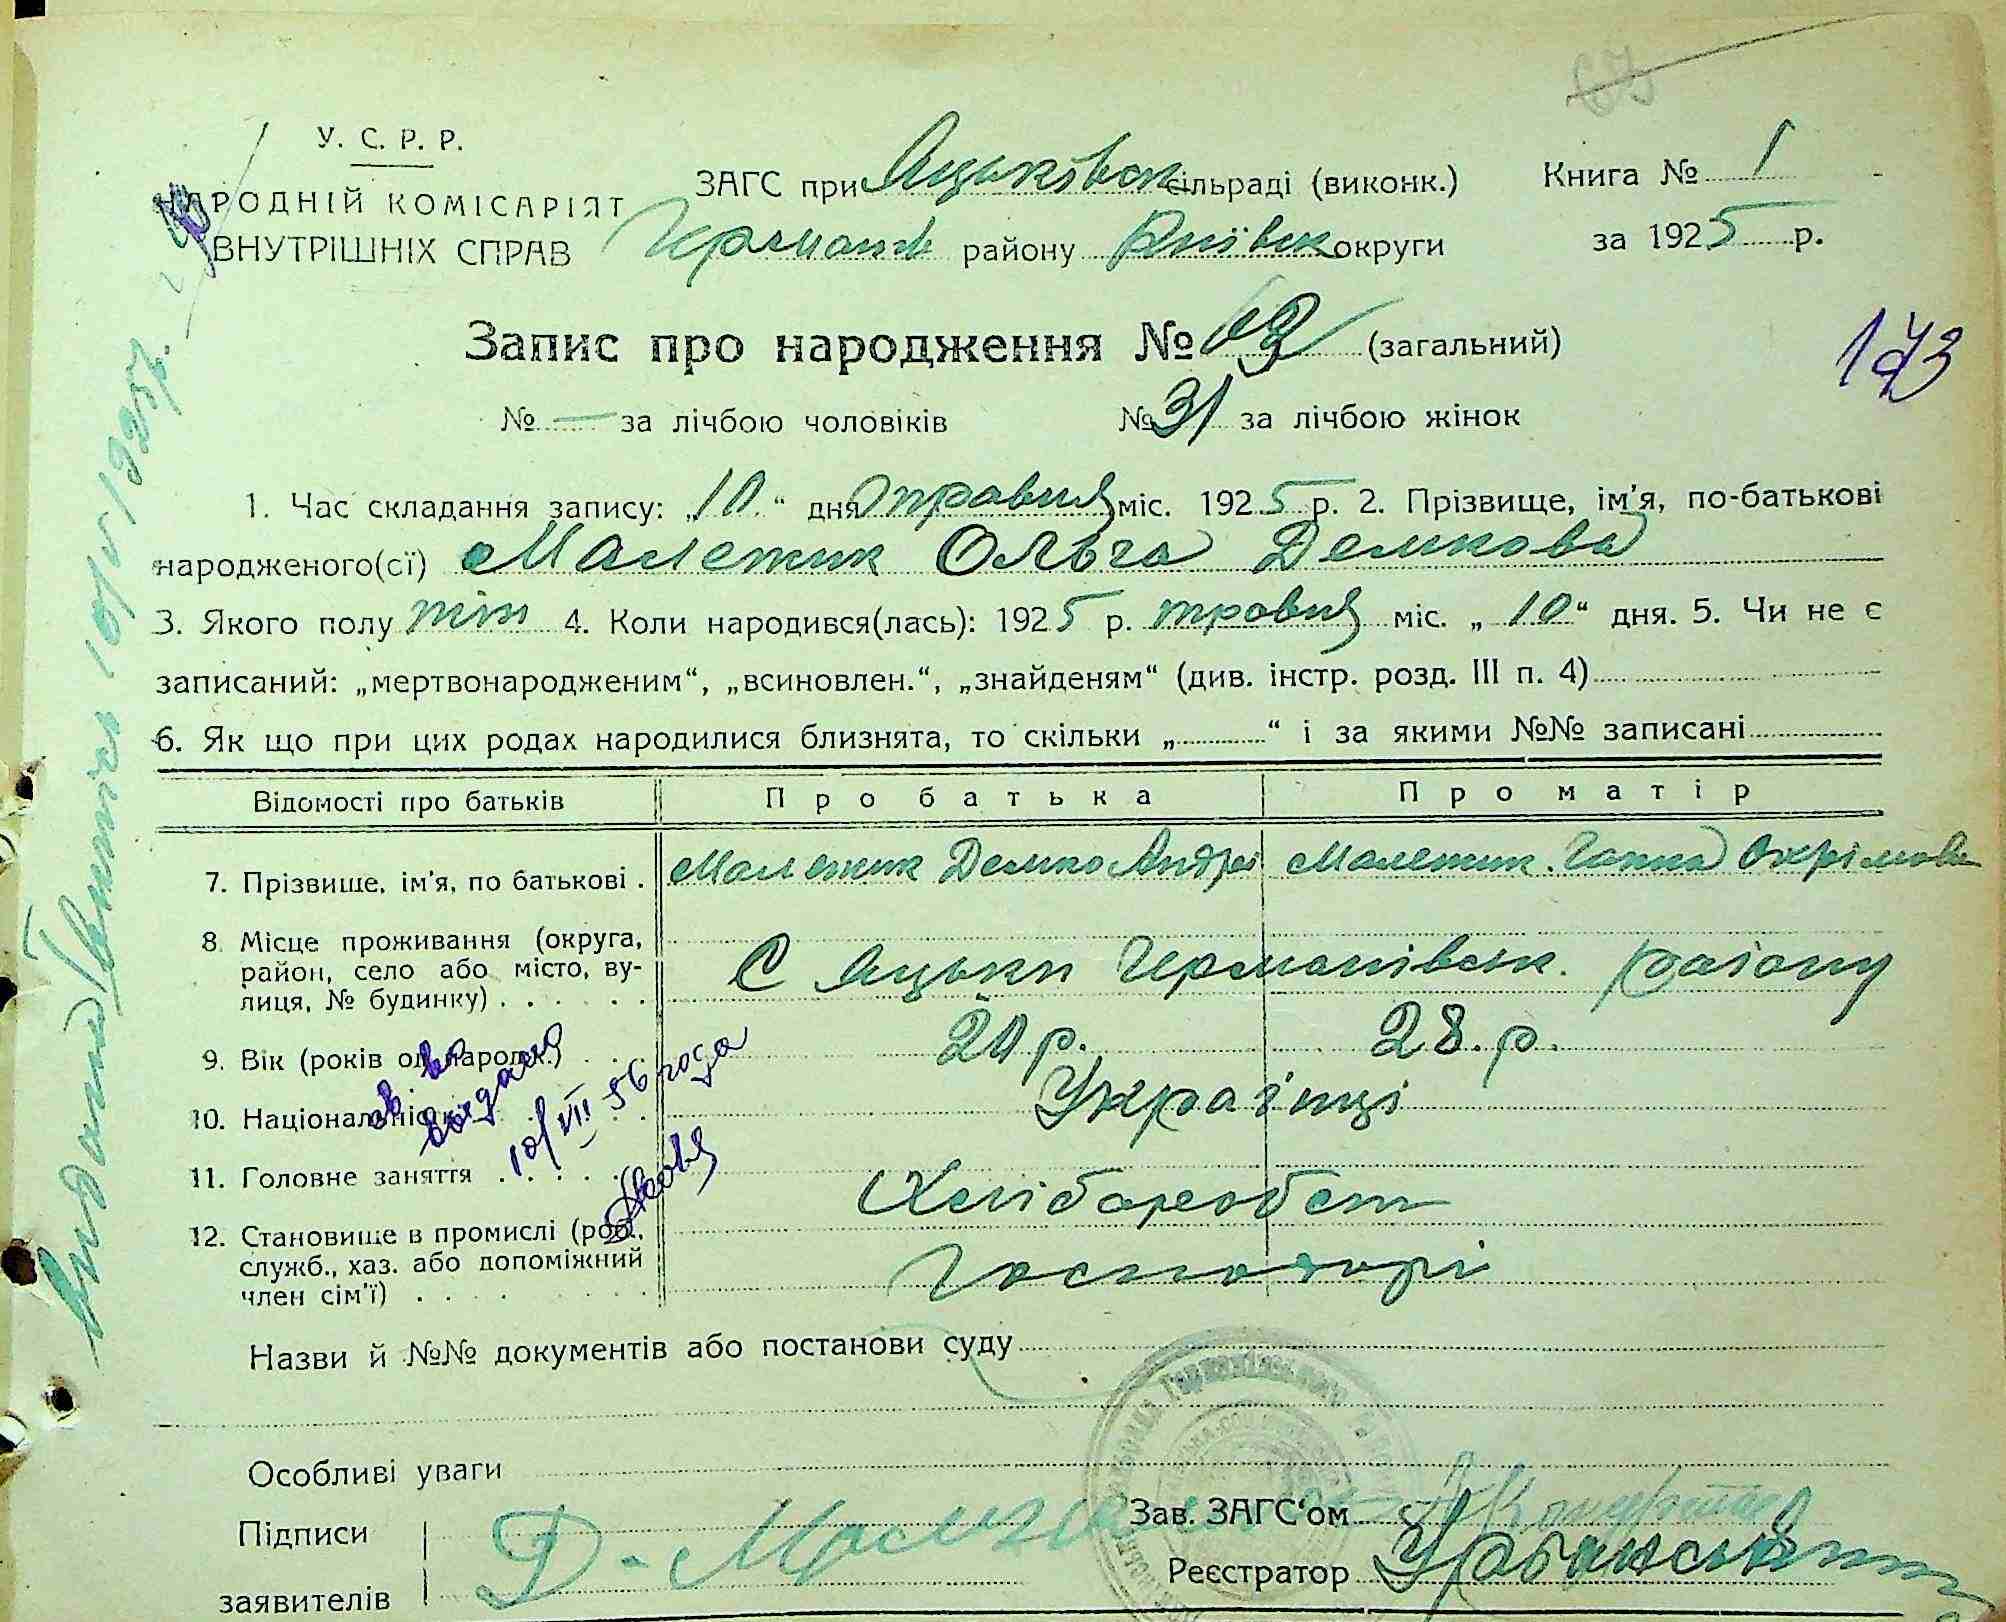 67
У. С. Р. Р.
НАРОДНІЙ КОМІСАРІЯТ
ВНУТРІШНІХ СПРАВ
ЗАГС при Яцьківськ сільраді (виконк.)
Герман району Київськ округи
Книга № 1
за 1925 р.
Запис про народження № 62 (загальний)
173
№ — за лічбою чоловіків № 31 за лічбою жінок
1. Час складання запису: „10“ дня травня міс. 1925 р. 2. Прізвище, ім'я, по-батькові
народженого(сї) Малетик Ольга Демкова
3. Якого полу жін 4. Коли народився(лась): 1925 р. травня міс. „10“ дня. 5. Чи не є
записаний: „мертвонародженим“, „всиновлен.“, „знайденям“ (див. інстр. розд. III п. 4)
6. Як що при цих родах народилися близнята, то скільки „ “ і за якими №№ записані
Відомості про батьків Про батька Про матір
7. Прізвише, ім'я, по батькові . Малетик Демко Андрі Малетик Ганна Охрімова
8. Місце проживання (округа,
район, село або місто, ву-
лиця, № будинку) . . . . . .
С Яцьки Германівськ. району
9. Вік (років од народж.) . . . 28. р.
10. Національність Українці
11. Головне заняття . . . . . Хлібороб
12. Становище в промислі (роб.,
служб., хаз. або допоміжний
член сім'ї) . . . . . . .
Господарі
10/VII 56 года
Назви й №№ документів або постанови суду
Особливі уваги
Підписи
заявителів
Д. Мале
Зав. ЗАГС'ом
Реєстратор Урбанськ
10/V 1925 р.